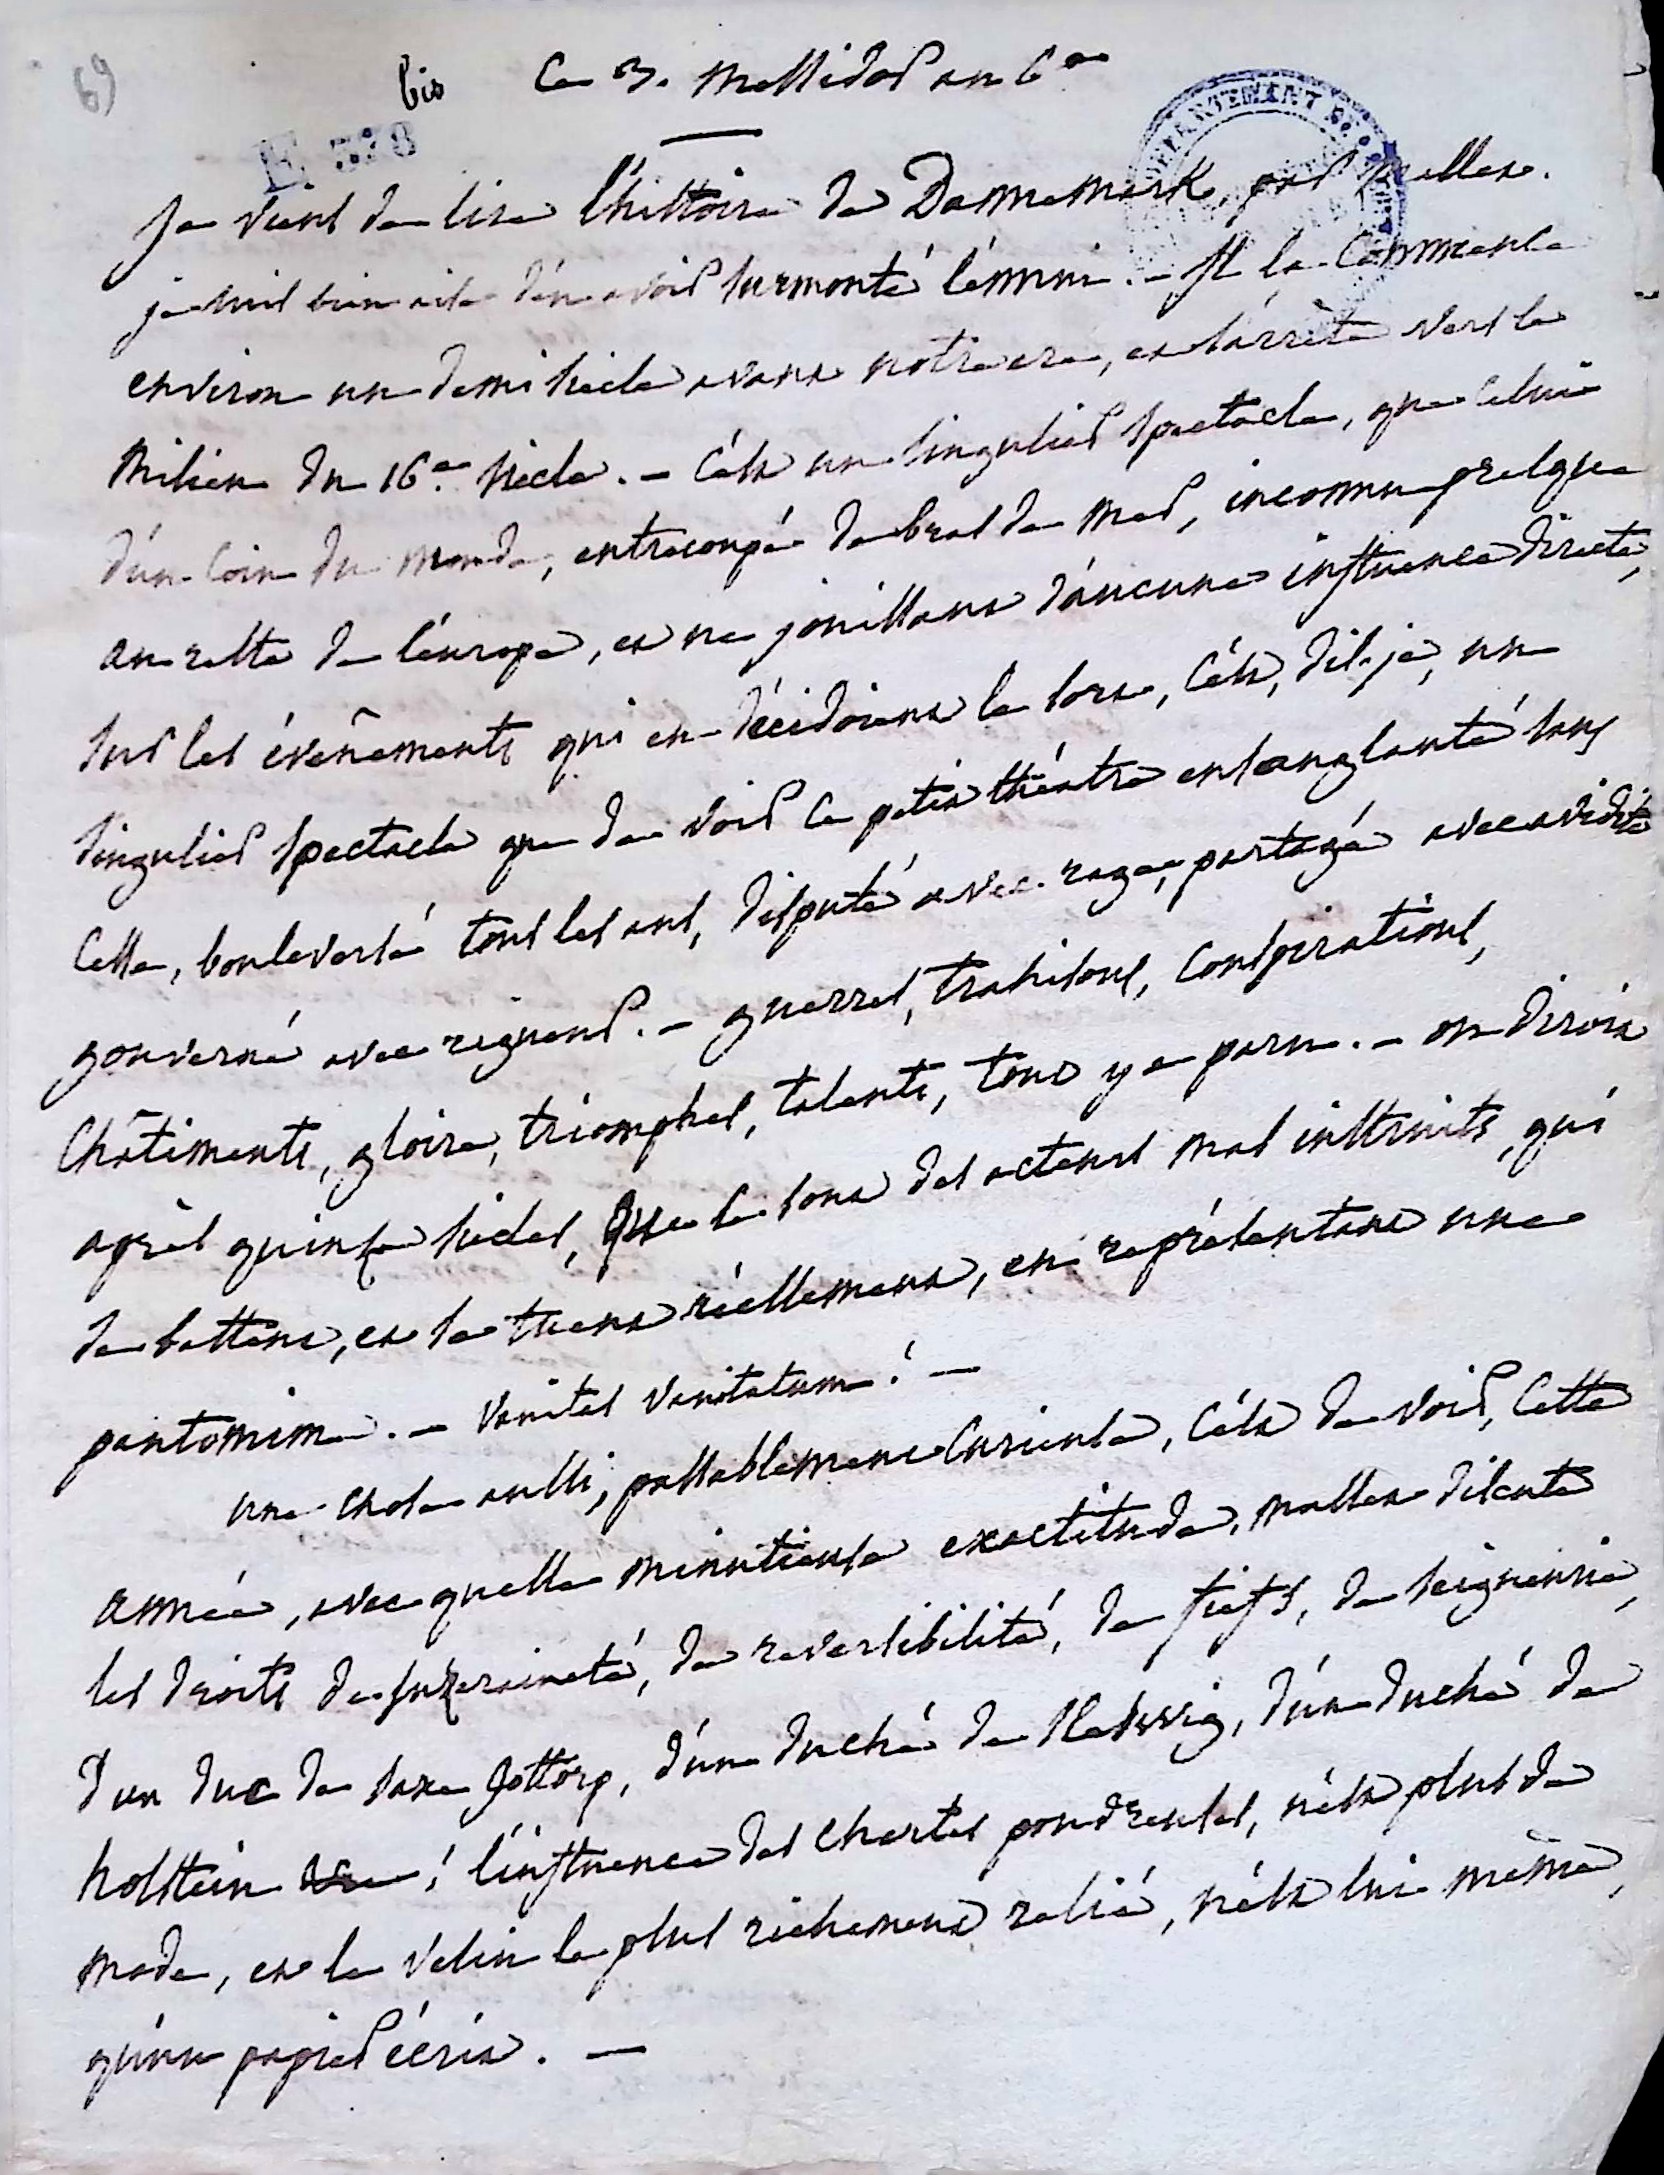 69
bis Ce 3. Messidor an 6.e
E 378
je viens de lire l'histoire de Dannemark, par Mallet.
je suis bien aise d'en avoir surmonté l'ennui. - Il la commence
environ un demi siècle avant notre ere, et s'arrête vers le
milieu du 16.e siècle. - C'est un singulier spectacle, que celui
d'un coin du monde, entrecoupé de bras de mer, inconnu presque
au reste de l'europe, et ne jouissant d'aucune influence directe,
sur les évenêments qui en décidoient le sort, c'est, dis-je, un
singulier spectacle que de voir ce petit théâtre ensanglanté sans
cesse, bouleversé tous les ans, disputé avec rage, partagé avec avidité
gouverné avec rigueur. - guerres, trahisons, conspirations,
châtiments, gloire, triomphes, talents, tout y a paru. - on diroit
après quinze siècles, que ce sont des acteurs mal instruits, qui
se battent, et se tuent réellement, en représentant une
pantomime. - Vanitas vanitatum! -
une chose aussi, passablement curieuse, c'est de voir, cette
année, avec quelle minutieuse exactitude, mallet discute
les droits de suzeraineté, de reversibilité, de fiefs, de seigneurie,
d'un duc de saxe gottorp, d'un duché de Sleswig, d'un duché de
holstein ! l'influence des chartes poudreuses, n'est plus de
mode, et le velin le plus richement relié, n'est lui même,
qu'un papier écrit. -